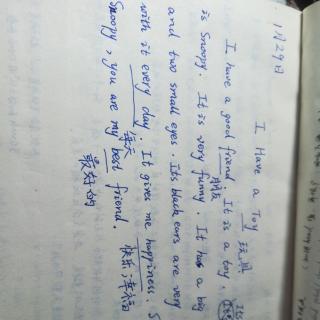 1月29日
I Have a Toy
玩具
I have a good friend. It is a toy. Its
朋友
is Snoopy. It is very funny. It has a big
and two small eyes. Its black ears are very
with it every day. It gives me happiness. S
每天
快乐;幸福
Snoopy, you are my best friend.
最好的